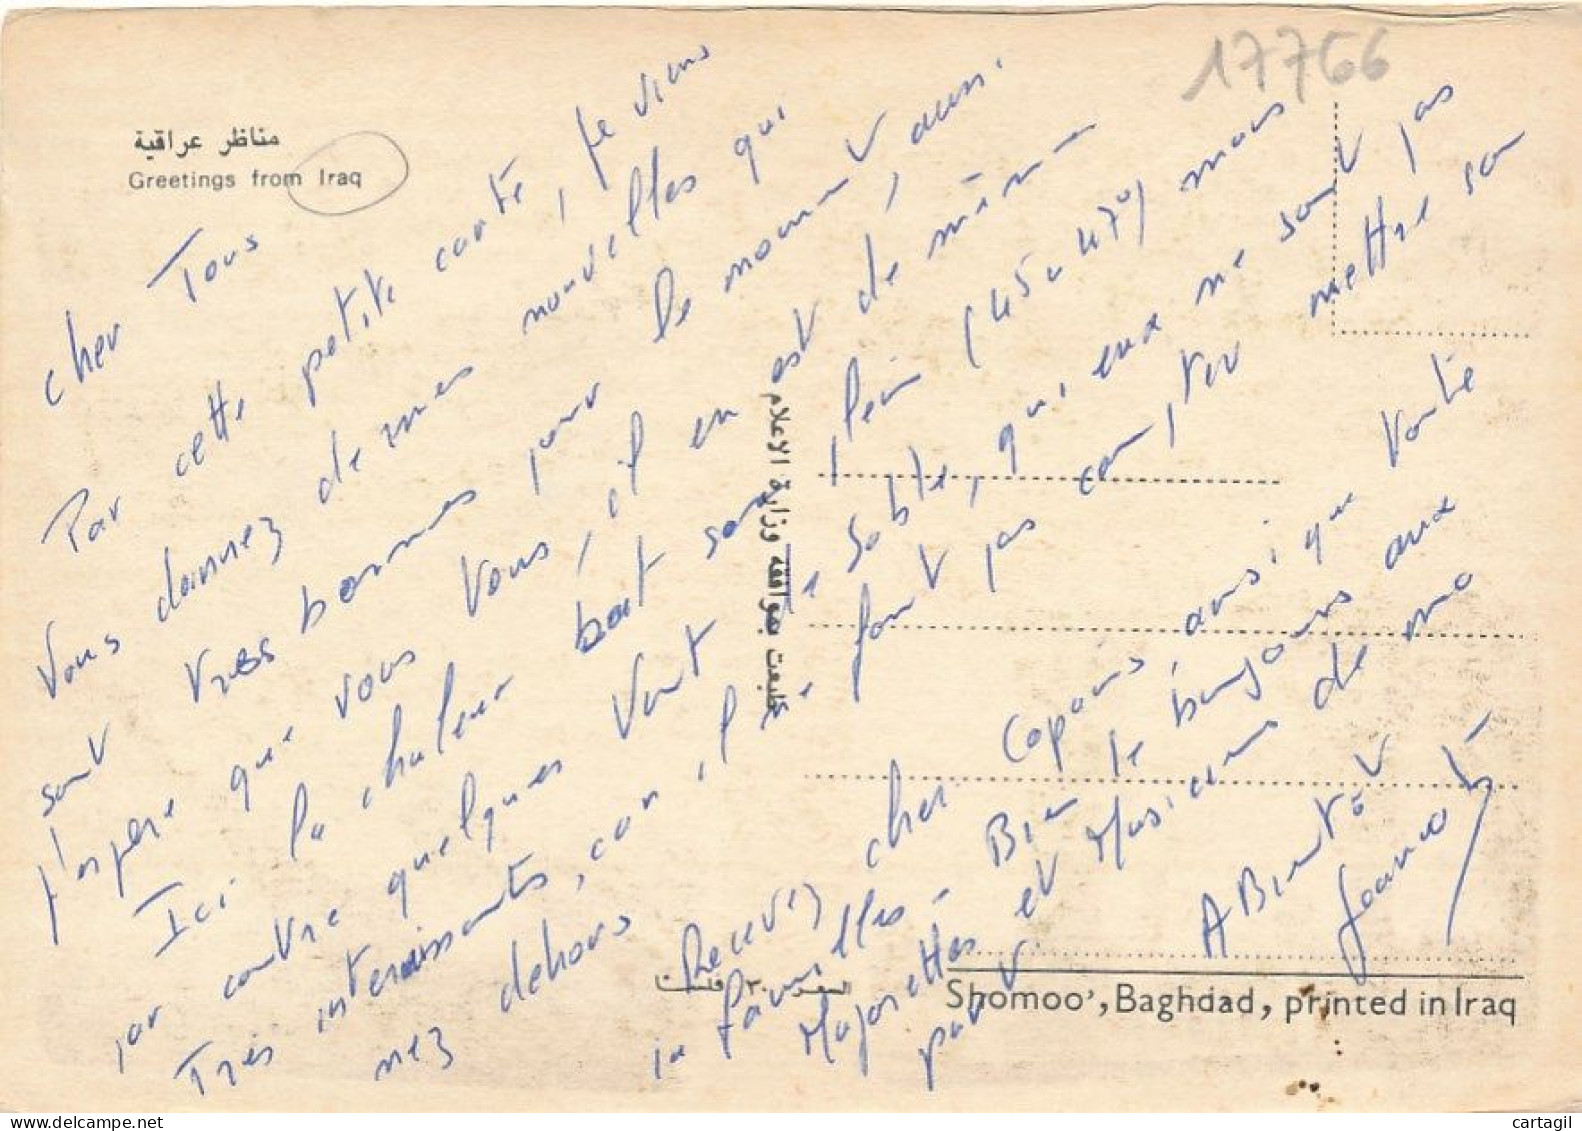 17766
مناظر عراقية
Greetings from Iraq
Cher Tous
Par cette petite carte, je viens
Vous donnez de mes nouvelles qui
sont Tres bonnes pour le moment,
j'espère que vous Vous, il en est de même
Ici la chaleur bat son plein (45 a 47°) mais
par contre quelques Vent de Sable, qui, eux ne sont pas
Très interessants, car, il ne faut pas compter mettre son
nez dehors
Recevez cher Copains ainsi que Votre
familles - Bien le bonjours aux
Majorettes et Musiciens de ma
part.
A Bientôt
طبعت بموافقة وزارة الاعلام
السعر ٣٠ فلسا
Shomoo', Baghdad, printed in Iraq
cartagil